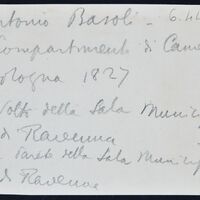 ntonio Basoli - 6.44
Compartimenti di Came
ologna 1827
Volta della Sala Municip
di Ravenna
Parete della Sala Municip
di Ravenna